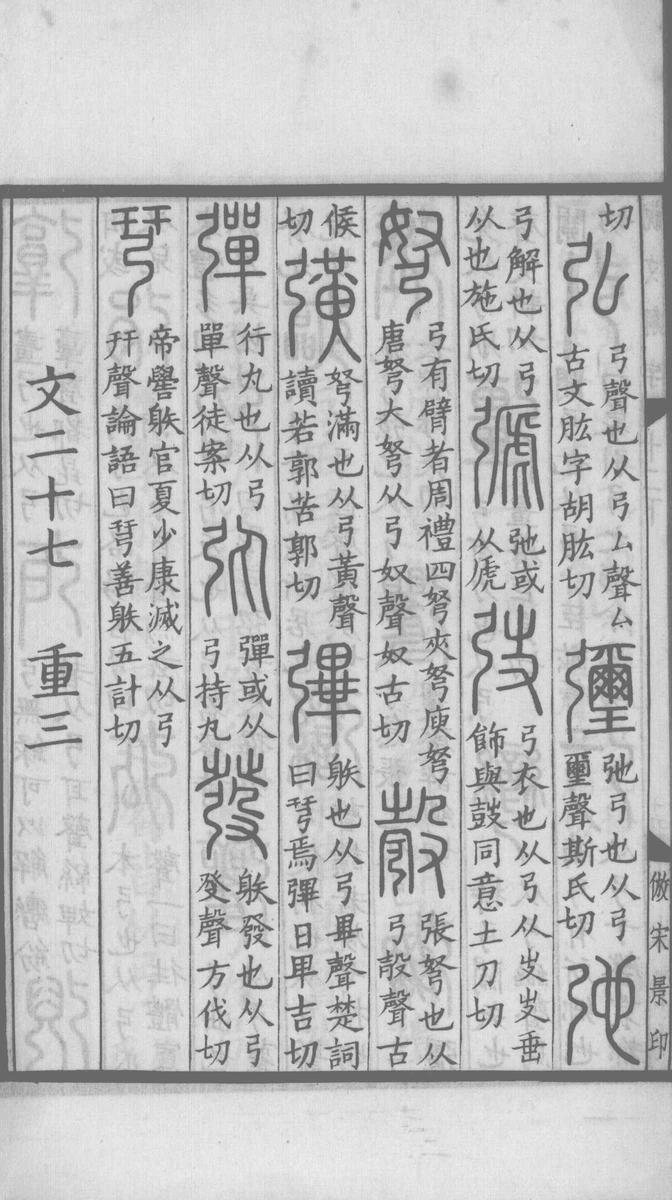 切弘弓聲也从弓厶聲厶古文肱字胡肱切瓕弛弓也从弓璽聲斯氏切弛
弓解也从弓从也施氏切𢐋弛或从虒弢弓衣也从弓从㞢㞢垂飾與鼓同意土刀切
弩弓有臂者周禮四弩夾弩庾弩唐弩大弩从弓奴聲奴古切彀張弩也从弓㱿聲古
候切彉弩滿也从弓黃聲讀若郭苦郭切彃䠶也从弓畢聲楚詞曰𢏗焉彃日畢吉切
彈行丸也从弓單聲徒案切𢎫彈或从弓持丸發䠶發也从弓癹聲方伐切
𢏗帝嚳䠶官夏少康滅之从弓幵聲論語曰𢏗善䠶五計切
文二十七 重三
倣宋景印